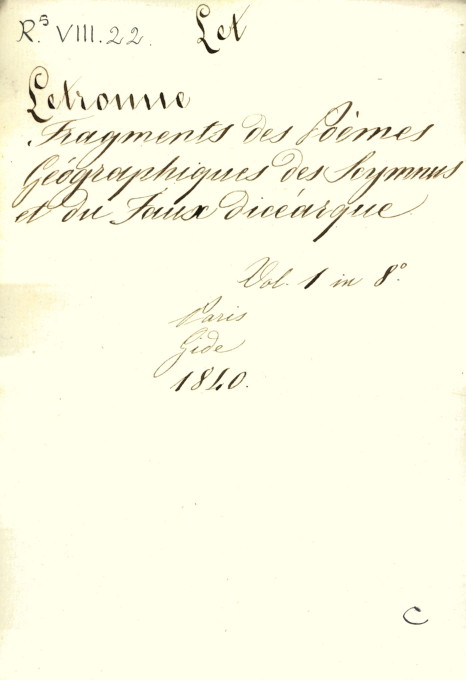 R.s VIII.22. Let
Letronne
Fragments des Poèmes
Géographiques des Scymnus
et du Faux dicéarque
Vol. 1 in 8°.
Paris
Gide
1840.
C